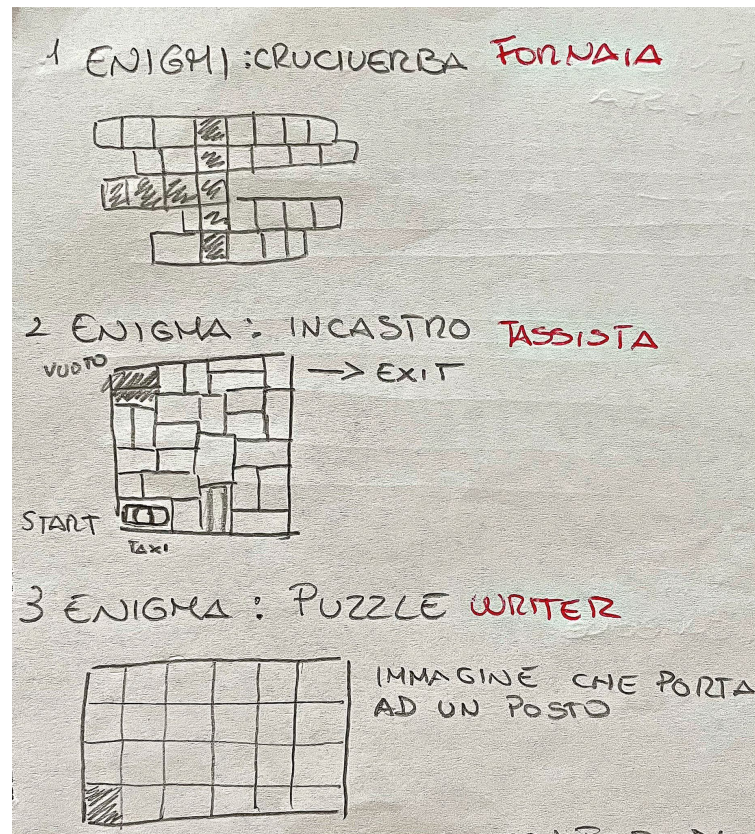 1 ENIGMI: CRUCIVERBA FORNAIA
2 ENIGMA: INCASTRO TASSISTA
VUOTO
→ EXIT
START
TAXI
3 ENIGMA: PUZZLE WRITER
IMMAGINE CHE PORTA
AD UN POSTO